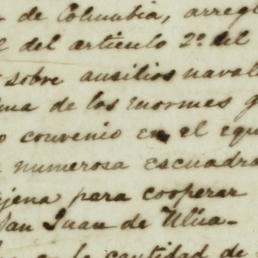 de Columbia, arregl
del articulo 2º del
sobre ausilios navale
ma de los enormes g
o convenio en el equi
numerosa escuadra
jena para cooperar
San Juan de Ulúa.
la cantidad de